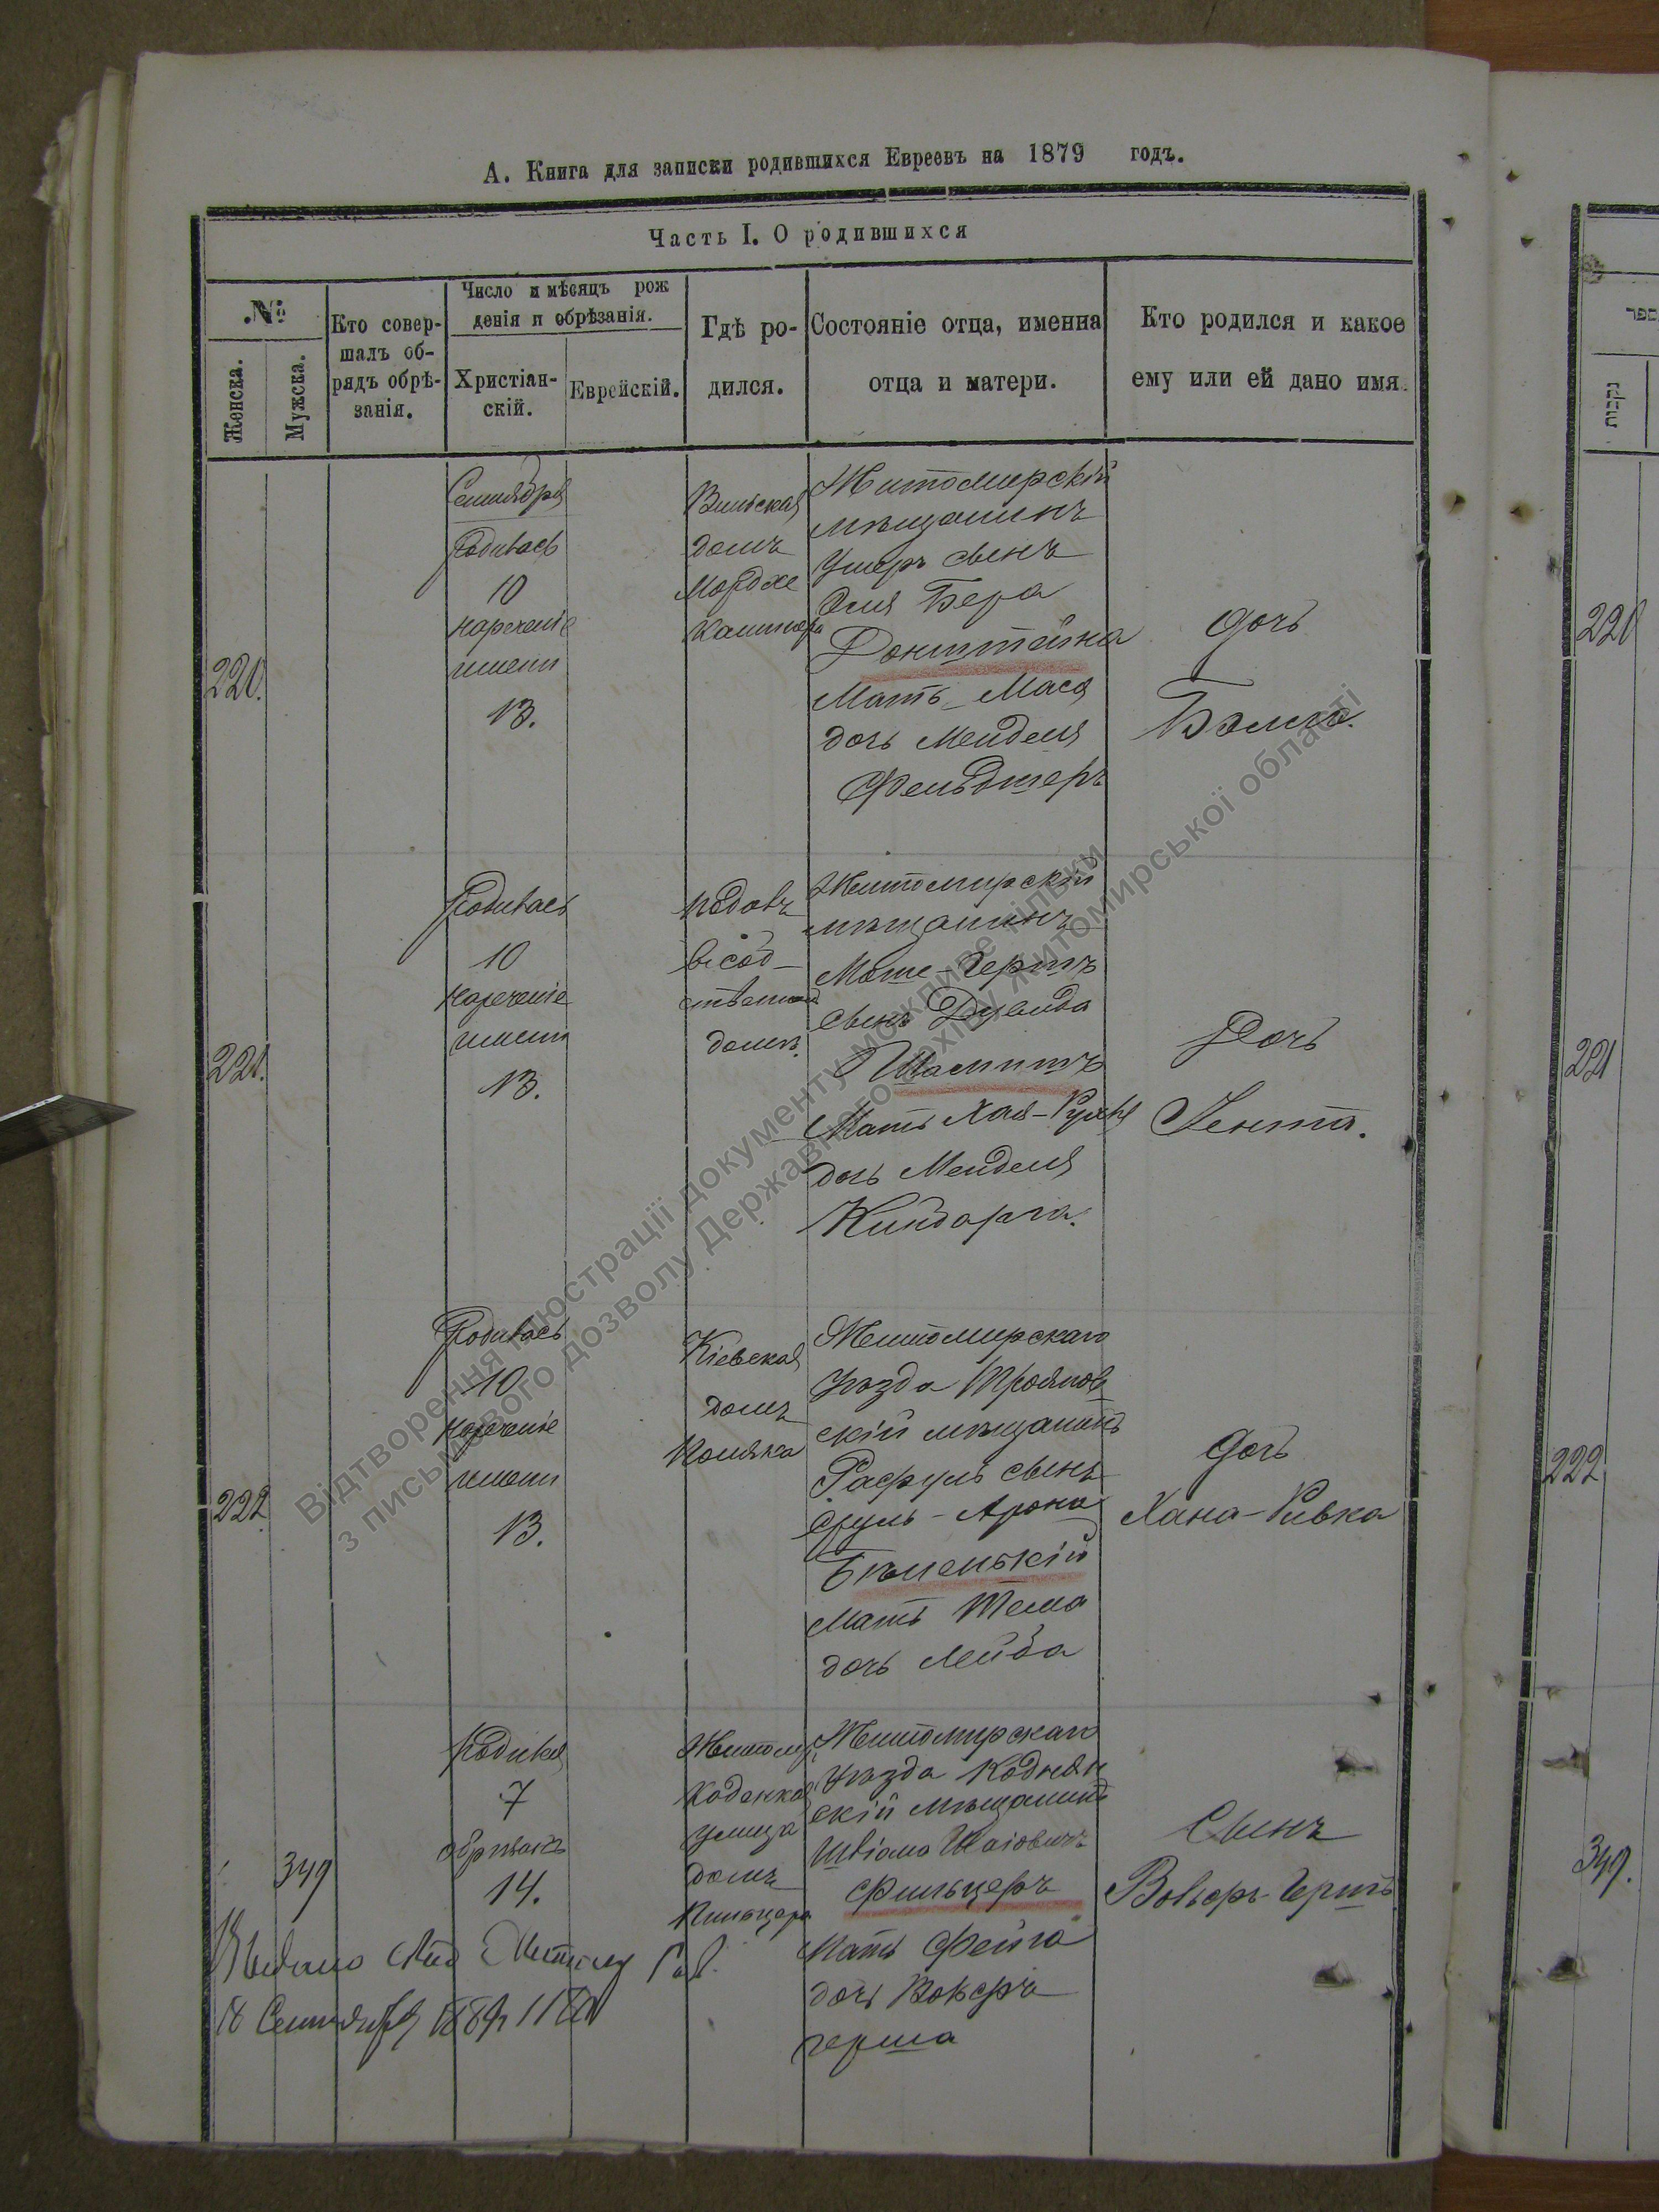 А. Книга для записки родившихся Евреевъ на 1879 годъ.
Часть I. О родившихся
№
Женска.
Мужска.
Кто совер-
шалъ об-
рядъ обрѣ-
занія.
Число и мѣсяцъ рож
денія и обрѣзанія.
Христіан-
скій.
Еврейскій.
Гдѣ ро-
дился.
Состояніе отца, именна
отца и матери.
Кто родился и какое
ему или ей дано имя.
ספר
נקבות
220.
Сентября
Родилась
10
нареченіе
имени
13.
Вильская
домъ
Мордхе
Житомирскій
мѣщанинъ
Ушеръ сынъ
Бера
Мать Мася
дочь Менделя
Фельдшеръ
дочь
220
221.
Родилась
10
нареченіе
имени
13.
въ соб-
ственномъ
домѣ.
Житомирскій
мѣщанинъ
Моше-Гершъ
сынъ Дувида
Мать Хая-Рухля
дочь Менделя
Дочь
Гента.
221
222
Родилась
10
нареченіе
имени
13.
Кіевская
домъ
Поляка
Житомирскаго
уѣзда Троянов
скій мѣщанинъ
Рафулъ сынъ
Сруль-Арона
Бѣленькій
Мать Тема
дочь Лейба
дочь
Хана-Ривка
222
349
Родился
7
обрѣзанъ
14.
Житомир
улица
домъ
Житомирскаго
уѣзда Коднян
скій мѣщанинъ
Фильцеръ
Мать Фейга
дочь Вольфъ
Герша
Сынъ
Вольфъ-Гершъ
349.
18 Сентября
Відтворення ілюстрації документу можливе тільки
з письмового дозволу Державного архіву Житомирської області